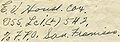 E W House Cox.
USS. L(c I) 542,
% F.P.O. San Francisco